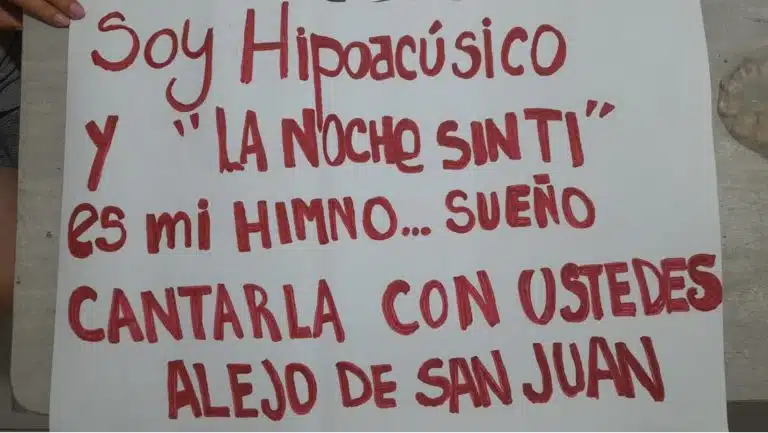 Soy Hipoacúsico
y "LA NOCHe SIN TI"
es mi HIMNO... SUEÑO
CANTARLA CON USTEDES
ALEJO DE SAN JUAN